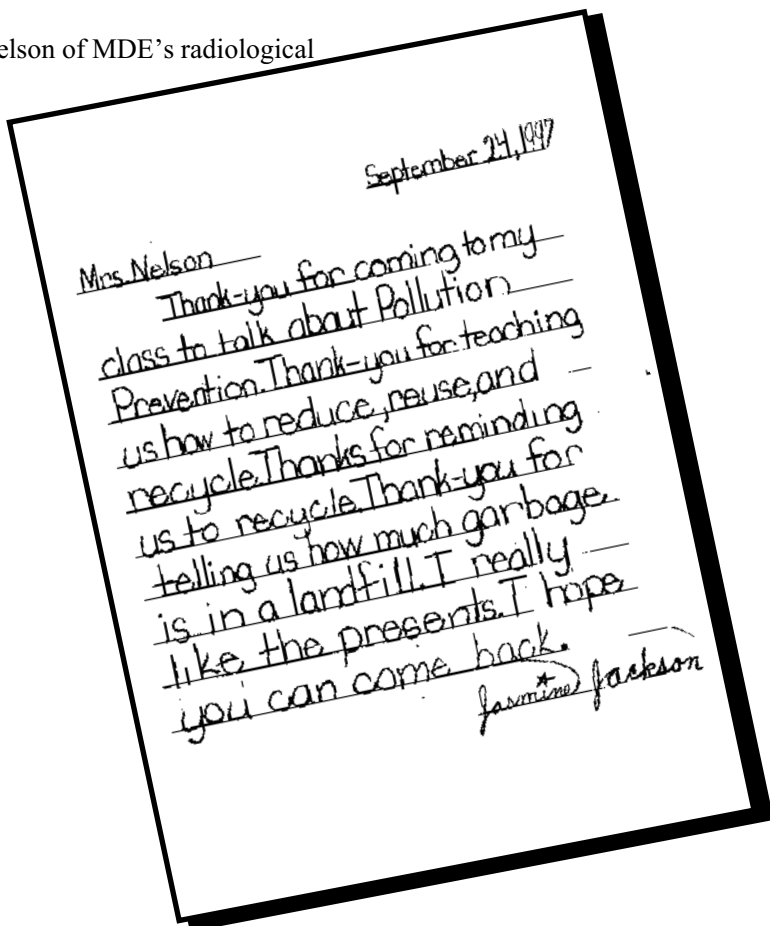 elson of MDE’s radiological
September 24, 1997
Mrs. Nelson
Thank-you for coming to my
class to talk about Pollution
Prevention. Thank-you for teaching
us how to reduce, reuse, and
recycle. Thanks for reminding
us to recycle. Thank-you for
telling us how much garbage
is in a landfill. I really
like the presents. I hope
you can come back.
Jasmine Jackson